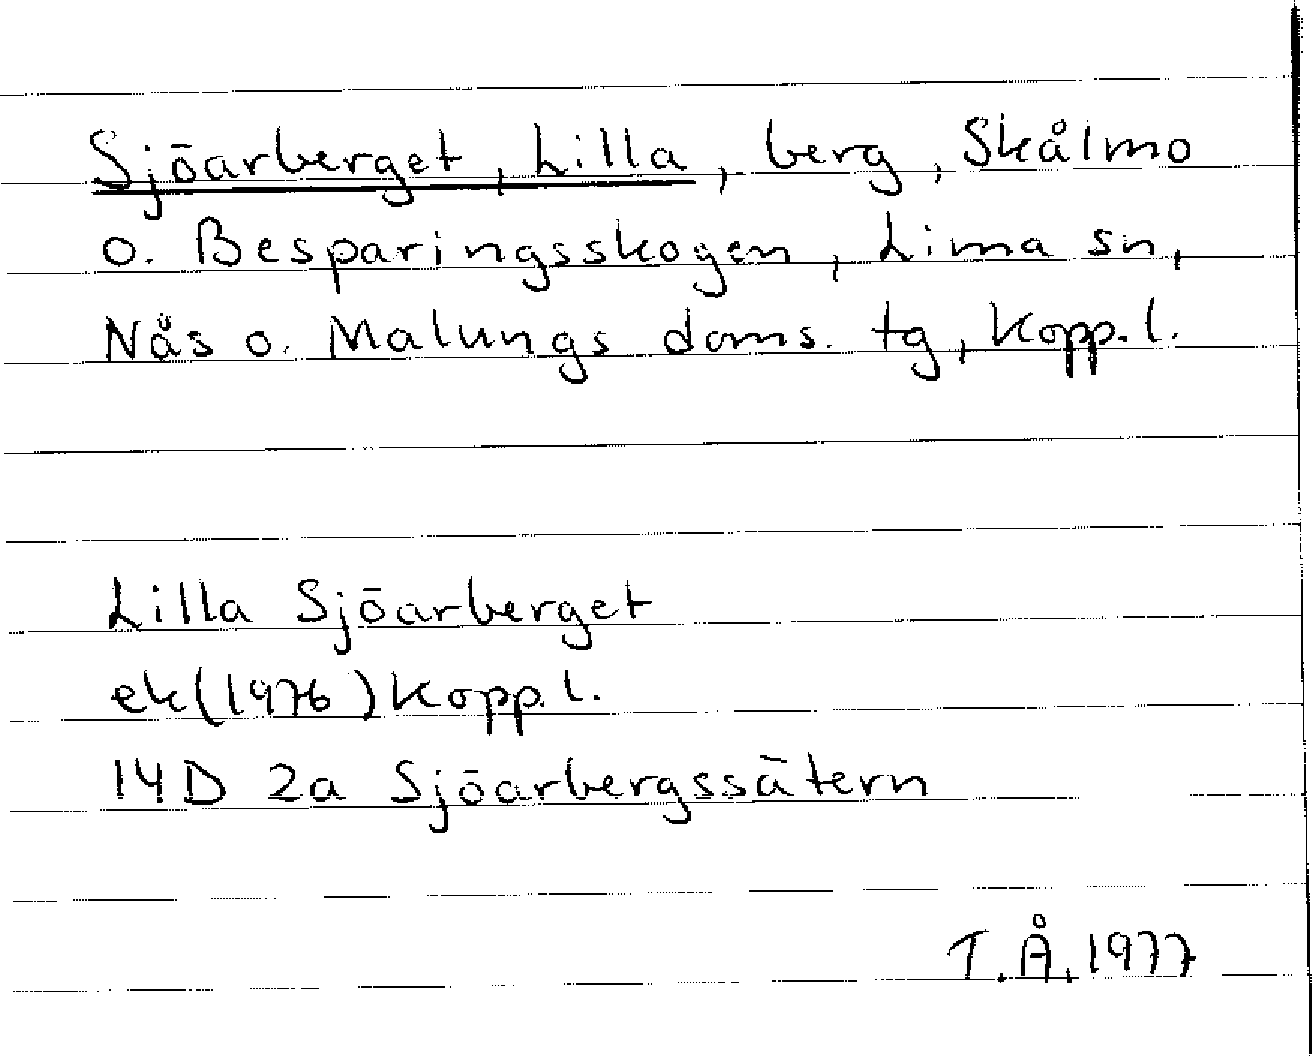 Sjöarberget, Lilla, berg, Skålmo
o. Besparingsskogen, Lima sn,
Nås o. Malungs doms. tg, Kopp. l.
Lilla Sjöarberget
ek(1976) Kopp. l.
14D 2a Sjöarbergssätern
T.Å, 1977